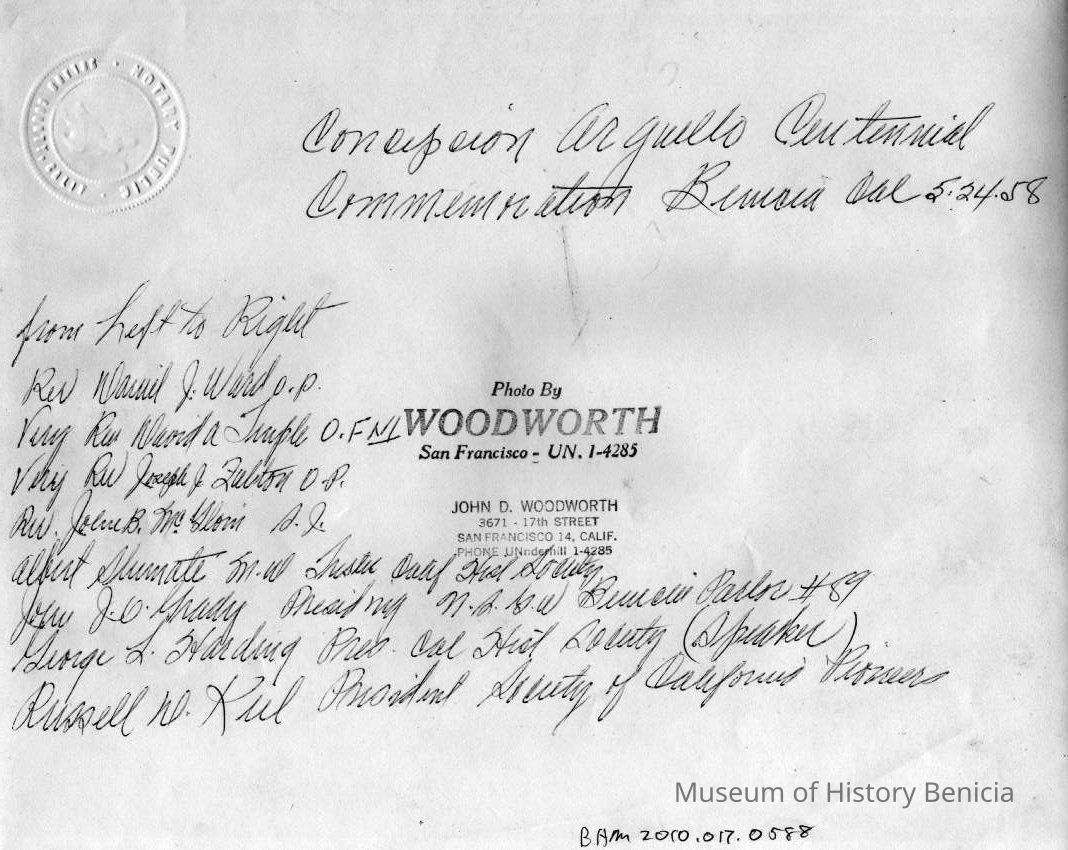 NOTARY PUBLIC
Concepcion Arguello Centennial
Commemoration Benicia Cal 5.24.58
from Left to Right
Rev Daniel J. Ward O.P.
Very Rev David Temple O.F.M.
Very Rev Joseph J. Fulton O.P.
Rev. John B. McGloin S.J.
Albert Shumate M.D Calif Hist Society
John J. O. Grady N.S.G.W Benicia Parlor #89
George L. Harding Pres. Cal Hist Society (Speaker)
Russell W. President Society of California Pioneers
Photo By
WOODWORTH
San Francisco - UN. 1-4285
JOHN D. WOODWORTH
3671 - 17th STREET
SAN FRANCISCO 14, CALIF.
PHONE UNnderhill 1-4285
Museum of History Benicia
BAM 2010.017.0588